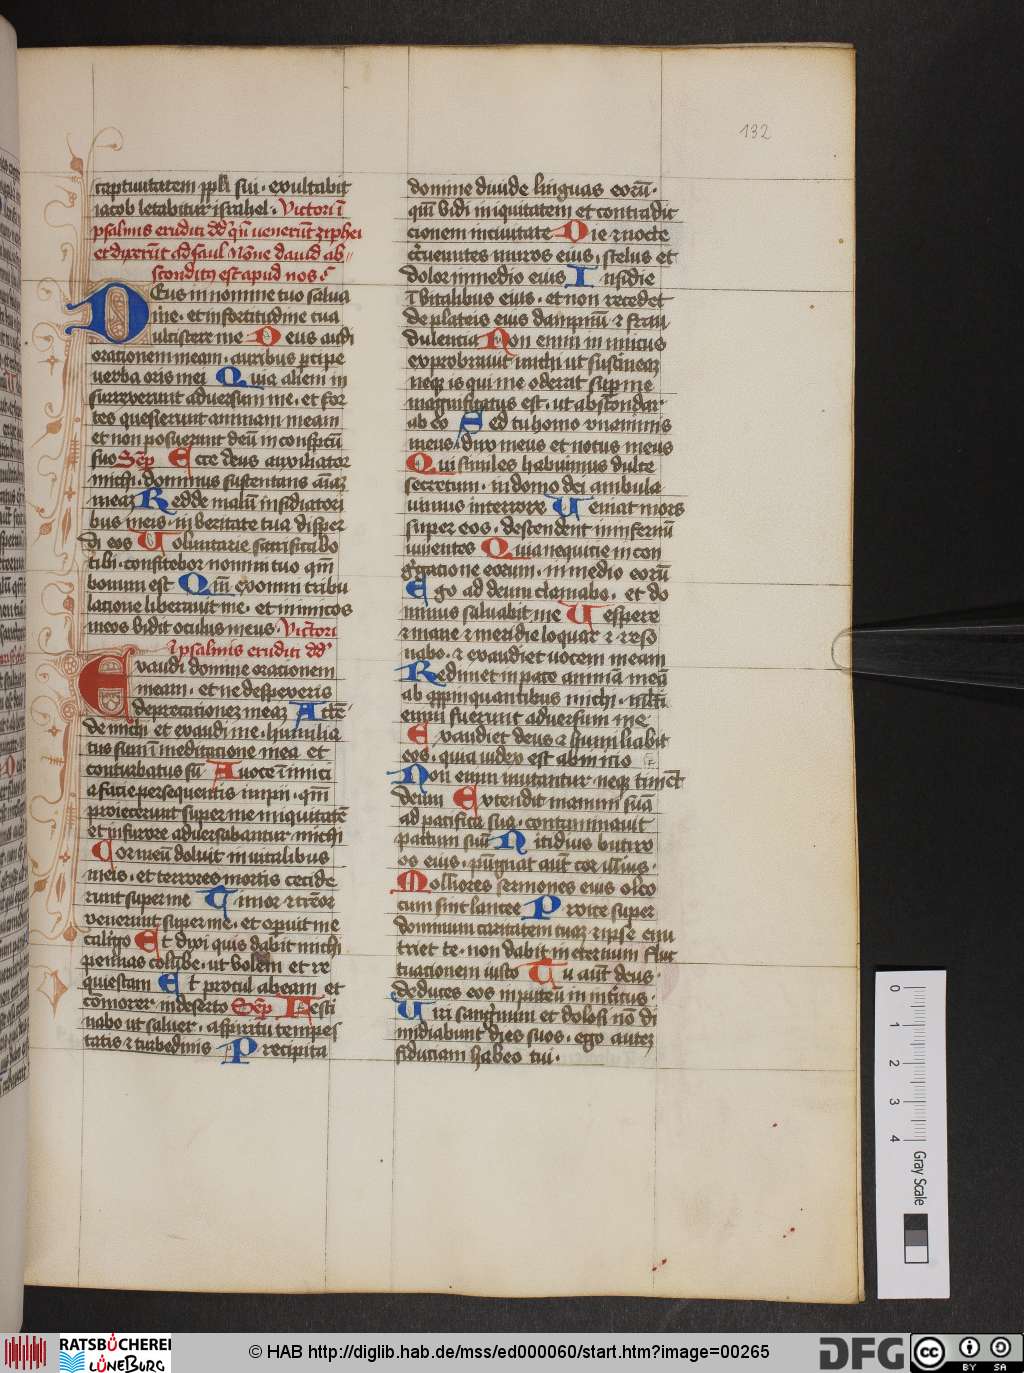 132
captiuitatem ppl'i sui · exultabit
iacob letabitur israhel · Victori ī
psalmis eruditi dd' qn̄ venerūt ziphei
et dixerūt ad saul Nōne dauid ab=
sconditꝰ est apud nos ·
Deus in nomine tuo saluū
me · et in fortitudine tua
ulciscere me Deus audi
orationem meam · auribus ꝑcipe
uerba oris mei Quia alieni in
surrexerunt aduersum me · et for
tes quesierunt animam meam
et non posuerunt deū in conspectū
suo Semp Ecce deus auxiliator
michi · dominus sustentans aīaꝫ
meaꝫ Redde malū insidiatori
bus meis · in veritate tua disper
di eos Voluntarie sacrificabo
tibi · confitebor nomini tuo qm̄
bonum est Qm̄ ex omni tribu
latione liberauit me · et inimicos
meos vidit oculus meus · Victori
ī psalmis eruditi dd'
Exaudi domine orationem
meam · et ne despexeris
deprecationeꝫ meaꝫ Actē=
de michi et exaudi me · humilia
tus sum ī meditacione mea et
conturbatus sū A uoce īimici
a facie persequentis impii · qm̄
proiecerunt super me iniquitatē
et in furore aduersabantur michi
Cor meū doluit in vitalibus
meis · et terrores mortis cecide
runt super me Timor et tremor
venerunt super me · et opuit me
caligo Et dixi quis dabit michi
pennas columbe · ut volem et re
quiescam Et procul abeam et
cōmorer in deserto Semp Festi
nabo ut saluer · a spiritu tempes
tatis et turbedinis Precipita
domine diuide linguas eorū ·
qm̄ vidi iniquitatem et contradic
cionem in ciuitate Die et nocte
circueuntes muros eius · scelus et
dolor in medio eius Insidie
ī vitalibus eius · et non recedet
de plateis eius dampnū et frau
dulentia Non enim inimicus
exprobrauit michi ut sustineaꝫ
neqꝫ is qui me oderat sup me
magnificatus est · ut abscondar
ab eo Sed tu homo vnanimis
meus · dux meus et notus meus
Qui simules habuimus dulce
secretum · in domo dei ambula
uimus in terrore Veniat mors
super eos · descendent in infernū
uiuentes Quia nequitie in con
gregatione eorum · in medio eorū
Ego ad deum clamabo · et do
minus saluabit me Vespere
et mane et meridie loquar et reso
nabo · et exaudiet uocem meam
Redimet in pace animā meā
ab appinquantibus michi · multi
enim fuerunt aduersum me
Exaudiet deus et humiliabit
eos · quia iudex est ab inicio
Non enim mutantur neqꝫ timēt
deum Extendit manum suā
ad pacifica sua · contaminauit
pactum suū Nitidius butiro
os eius · pugnat aut cor illius ·
Molliores sermones eius oleo
cum sint lancee Proice super
dominum caritatem tuaꝫ et ipse enu
triet te · non dabit in eternum fluc
tuacionem iusto Tu aut deus ·
deduces eos in puteū interitus ·
Viri sanguinum et dolosi nō di
midiabunt dies suos · ego auteꝫ
fiduciam habeo tui ·
0
1
2
3
4
Gray Scale
RATSBÜCHEREI
LÜNEBURG
© HAB http://diglib.hab.de/mss/ed000060/start.htm?image=00265
DFG
cc
BY SA